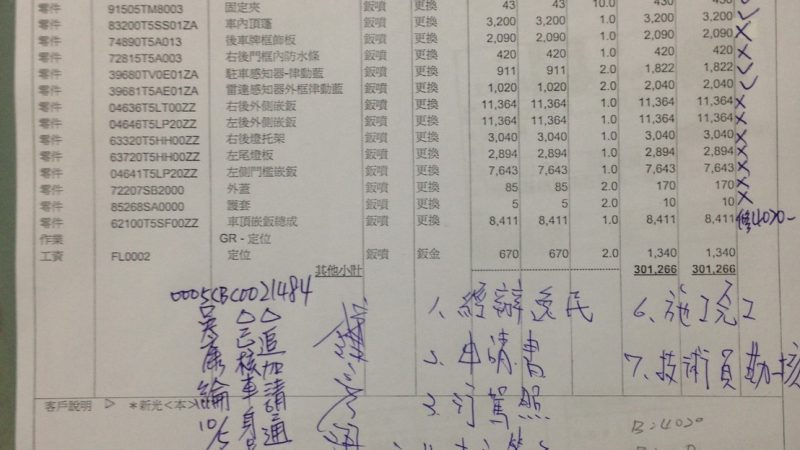 零件 91505TM8003 固定夾 鈑噴 更換 43 43 10.0 430 430
零件 83200T5SS01ZA 車內頂蓬 鈑噴 更換 3,200 3,200 1.0 3,200 3,200 ✓
零件 74890T5A013 後車牌框飾板 鈑噴 更換 2,090 2,090 1.0 2,090 2,090 ×
零件 72815T5A003 右後門框內防水條 鈑噴 更換 420 420 1.0 420 420 ×
零件 39680TV0E01ZA 駐車感知器-律動藍 鈑噴 更換 911 911 2.0 1,822 1,822 ✓
零件 39681T5AE01ZA 雷達感知器外框律動藍 鈑噴 更換 1,020 1,020 2.0 2,040 2,040 ✓
零件 04636T5LT00ZZ 右後外側嵌鈑 鈑噴 更換 11,364 11,364 1.0 11,364 11,364 ×
零件 04646T5LP20ZZ 左後外側嵌鈑 鈑噴 更換 11,364 11,364 1.0 11,364 11,364 ×
零件 63320T5HH00ZZ 右後燈托架 鈑噴 更換 3,040 3,040 1.0 3,040 3,040 ×
零件 63720T5HH00ZZ 左尾燈板 鈑噴 更換 2,894 2,894 1.0 2,894 2,894 ×
零件 04641T5LP20ZZ 左側門檻嵌鈑 鈑噴 更換 7,643 7,643 1.0 7,643 7,643 ×
零件 72207SB2000 外蓋 鈑噴 更換 85 85 2.0 170 170 ×
零件 85268SA0000 護套 鈑噴 更換 5 5 2.0 10 10 ×
零件 62100T5SF00ZZ 車頂嵌鈑總成 鈑噴 更換 8,411 8,411 1.0 8,411 8,411
作業 GR - 定位
工資 FL0002 定位 鈑噴 鈑金 670 670 2.0 1,340 1,340
其他小計 301,266 301,266
0005CBC0021484
1、經辦
6、施工完工
已核車身
追加請通
2、申請書
7、技術員勘核
3、行駕照
客戶說明 ▷ *新光<本>
10/5